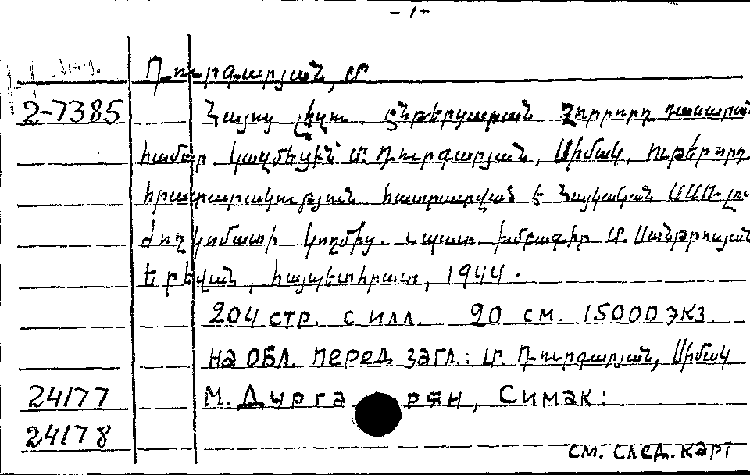 - 1 -
Դուրգարյան, Մ.
2-7385 Հայոց լեզու ընթերցարան չորրորդ դասարանի
համար կազմեցին՝ Մ. Դուրգարյան, Սիմակ, ութերորդ
հրատարակություն հաստատված է Հայկական ՍՍՌ
ժողկոմատի կողմից. պատ. խմբագիր Մ.
Երեվան, հայպետհրատ, 1944.
204 стр. с илл. 20 см. 15000 экз.
на обл. перед загл.: Մ. Դուրգարյան, Սիմակ
24177 М. Дурга рян, Симак:
24178
см. след. карт